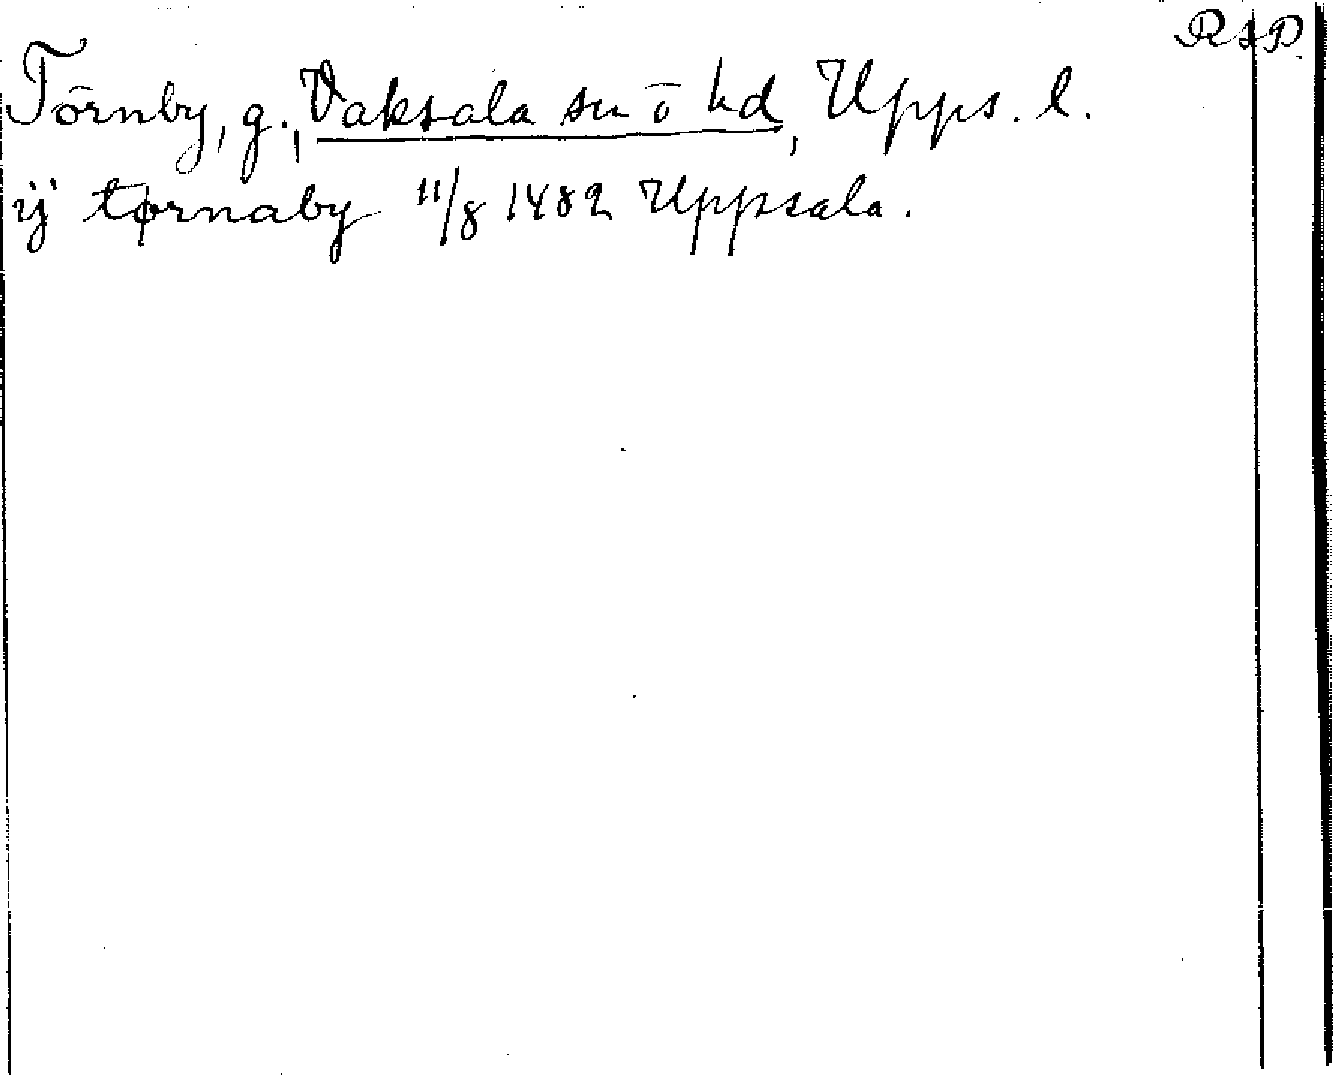 RAP
Törnby, g., Vaksala sn ō hd, Upps. l.
ÿ tørnaby 11/8 1482 Uppsala.